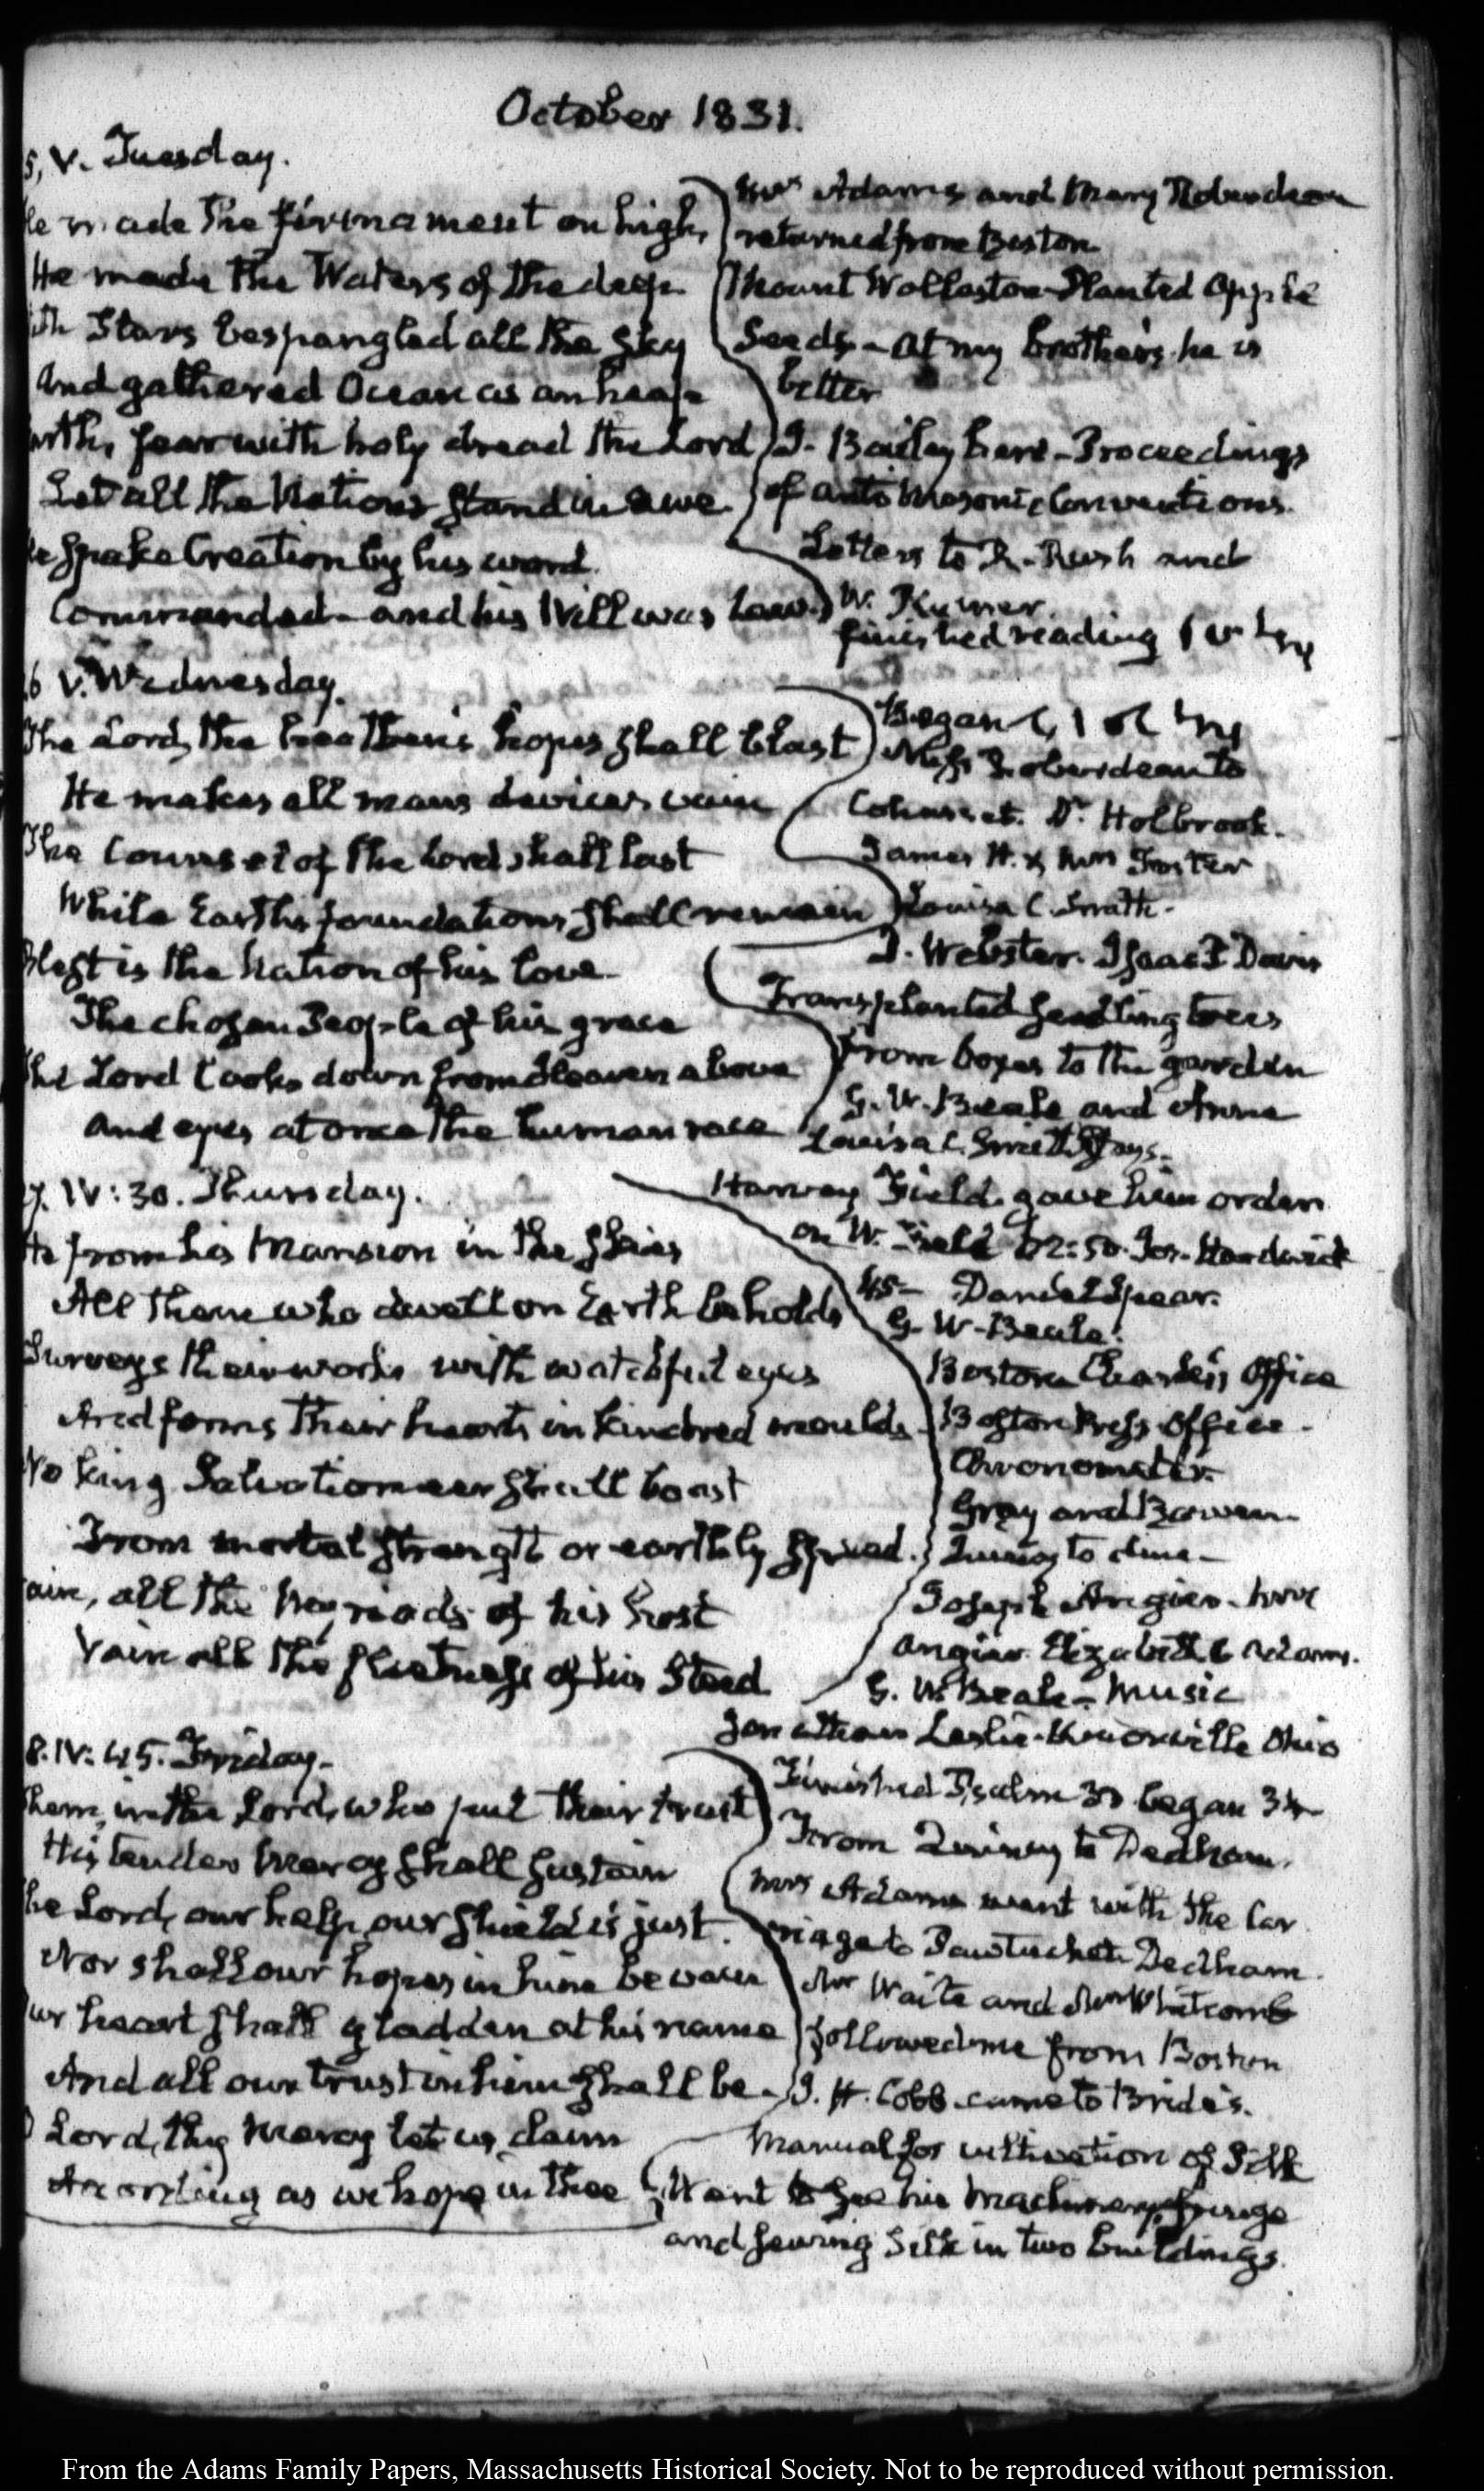 October 1831.
5, V. Tuesday.
He made the firmament on high,
He made the Waters of the deep
With Stars bespangled all the Sky
And gathered Ocean as an heap
Earth, fear with holy dread the Lord
Let all the Nations stand in awe.
He spake Creation by his word.
Commanded - and his Will was Law.
Mrs Adams and Mary Roberdeau
returned from Boston
Mount Wollaston - Planted Apple
Seeds - at my brother's. he is
better
J. Bailey here - Proceedings
of anti Masonic Conventions.
Letters to R. Rush and
W.
finished reading
6 V. Wednesday.
The Lord, the heathen's hopes shall blast
He makes all mans devices vain
The Counsel of the Lord shall last
While Earth's foundations shall remain
Blest is the Nation of his love.
The chosen People of his grace
The Lord looks down from Heaven above
And eyes at once the human race
Began
Miss Roberdeau to
Cohasset. Dr. Holbrook.
James H. & Mrs Foster
Louisa C. Smith.
D. Webster. Isaac P Davis
Transplanted seedling trees
from boxes to the garden
G. W. Beale and Anna
Louisa C. Smith stays.
7. IV:30. Thursday.
He from his Mansion in the Skies
All them who dwell on Earth beholds
Surveys their works with watchful eyes
And forms their hearts in kindred moulds.
No king Salvation e'er shall boast
From mortal strength or earthly speed.
Vain, all the Myriads of his host
Vain all the fleetness of his Steed
Harvey Field. gave him order
on W. Field 12:50. Jos. Hardwick
45 - Daniel Spear.
G. W. Beale.
Boston Charles's Office
Boston Press Office.
Chronometer.
Gray and Bowen.
Quincy to dine -
Joseph Angier. Mrs
Angier. Elizabeth C Adams.
G. W. Beale - Music
Jonathan Leslie - Knoxville Ohio
8. IV:45. Friday.
Them, in the Lord, who put their trust
His tender Mercy shall sustain
The Lord, our help, our shield is just.
Nor shall our hopes in him be vain
Our heart shall gladden at his name
And all our trust in him shall be.
O Lord, thy Mercy let us claim
According as we hope in thee
Finished Psalm 33 began 34
From Quincy to Dedham.
Mrs Adams went with the Car
riage to Pawtucket. Dedham.
Mr Waite and Mr Whitcomb
followed me from Boston
J. H. Cobb came to Bride's.
Manual for cultivation of Silk
Went to see his Machinery, fringe
and sewing Silk in two buildings.
From the Adams Family Papers, Massachusetts Historical Society. Not to be reproduced without permission.